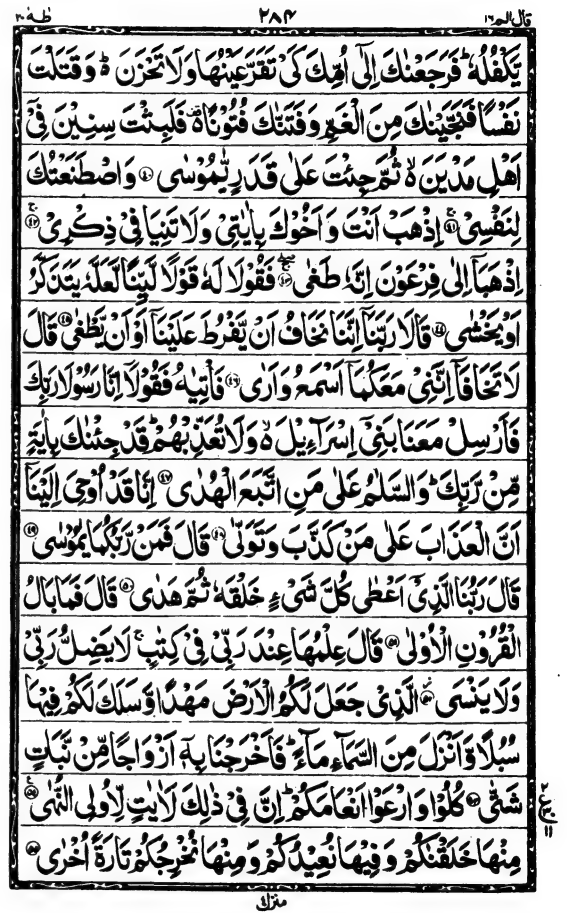 قال الم ١٦ ٢٨۴ طٰهٰ ٢٠
يَّكْفُلُهٗ ؕ فَرَجَعْنٰكَ اِلٰۤى اُمِّكَ كَىْ تَقَرَّ عَيْنُهَا وَلَا تَحْزَنَ ؕ۬ وَقَتَلْتَ
نَفْسًا فَنَجَّيْنٰكَ مِنَ الْغَمِّ وَفَتَنّٰكَ فُتُوْنًا ۬۫ فَلَبِثْتَ سِنِيْنَ فِىْۤ
اَهْلِ مَدْيَنَ ۬ۙ ثُمَّ جِئْتَ عَلٰى قَدَرٍ يّٰمُوْسٰى ﴿۴۰﴾ وَاصْطَنَعْتُكَ
لِنَفْسِىْ ۚ﴿۴۱﴾ اِذْهَبْ اَنْتَ وَاَخُوْكَ بِاٰيٰتِىْ وَلَا تَنِيَا فِىْ ذِكْرِىْ ۚ﴿۴۲﴾
اِذْهَبَاۤ اِلٰى فِرْعَوْنَ اِنَّهٗ طَغٰى ۚ﴿۴۳﴾ فَقُوْلَا لَهٗ قَوْلًا لَّيِّنًا لَّعَلَّهٗ يَتَذَكَّرُ
اَوْ يَخْشٰى ﴿۴۴﴾ قَالَا رَبَّنَاۤ اِنَّنَا نَخَافُ اَنْ يَّفْرُطَ عَلَيْنَاۤ اَوْ اَنْ يَّطْغٰى ﴿۴۵﴾ قَالَ
لَا تَخَافَاۤ اِنَّنِىْ مَعَكُمَاۤ اَسْمَعُ وَاَرٰى ﴿۴۶﴾ فَاْتِيٰهُ فَقُوْلَاۤ اِنَّا رَسُوْلَا رَبِّكَ
فَاَرْسِلْ مَعَنَا بَنِىْۤ اِسْرَآءِيْلَ ۬ۙ وَلَا تُعَذِّبْهُمْ ؕ قَدْ جِئْنٰكَ بِاٰيَةٍ
مِّنْ رَّبِّكَ ؕ وَالسَّلٰمُ عَلٰى مَنِ اتَّبَعَ الْهُدٰى ﴿۴۷﴾ اِنَّا قَدْ اُوْحِىَ اِلَيْنَاۤ
اَنَّ الْعَذَابَ عَلٰى مَنْ كَذَّبَ وَتَوَلّٰى ﴿۴۸﴾ قَالَ فَمَنْ رَّبُّكُمَا يٰمُوْسٰى ﴿۴۹﴾
قَالَ رَبُّنَا الَّذِىْۤ اَعْطٰى كُلَّ شَىْءٍ خَلْقَهٗ ثُمَّ هَدٰى ﴿۵۰﴾ قَالَ فَمَا بَالُ
الْقُرُوْنِ الْاُوْلٰى ﴿۵۱﴾ قَالَ عِلْمُهَا عِنْدَ رَبِّىْ فِىْ كِتٰبٍ ۚ لَا يَضِلُّ رَبِّىْ
وَلَا يَنْسَى ﴿۵۲﴾ الَّذِىْ جَعَلَ لَكُمُ الْاَرْضَ مَهْدًا وَّسَلَكَ لَكُمْ فِيْهَا
سُبُلًا وَّاَنْزَلَ مِنَ السَّمَآءِ مَآءً ؕ فَاَخْرَجْنَا بِهٖۤ اَزْوَاجًا مِّنْ نَّبَاتٍ
شَتّٰى ﴿۵۳﴾ كُلُوْا وَارْعَوْا اَنْعَامَكُمْ ؕ اِنَّ فِىْ ذٰلِكَ لَاٰيٰتٍ لِّاُولِى النُّهٰى ﴿۵۴﴾
مِنْهَا خَلَقْنٰكُمْ وَفِيْهَا نُعِيْدُكُمْ وَمِنْهَا نُخْرِجُكُمْ تَارَةً اُخْرٰى ﴿۵۵﴾
منزل